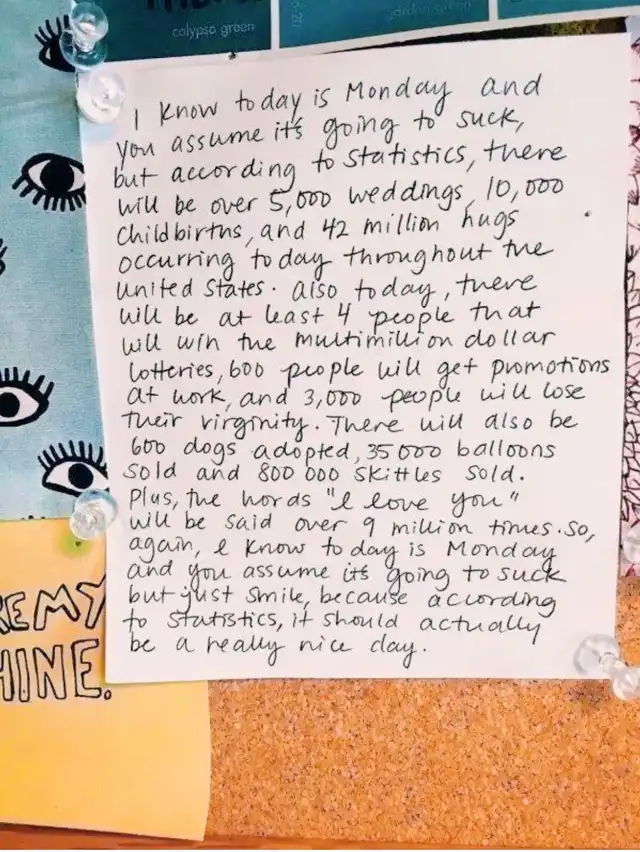 calypso green
garden green
I know today is Monday and
you assume it's going to suck,
but according to statistics, there
will be over 5,000 weddings, 10,000
childbirths, and 42 million hugs
occurring today throughout the
United States. Also today, there
will be at least 4 people that
will win the multimillion dollar
lotteries, 600 people will get promotions
at work, and 3,000 people will lose
their virginity. There will also be
600 dogs adopted, 35 000 balloons
sold and 800 000 skittles sold.
Plus, the words "I love you"
will be said over 9 million times. So,
again, I know today is Monday
and you assume it's going to suck
but just smile, because according
to statistics, it should actually
be a really nice day.
EMY
HINE.